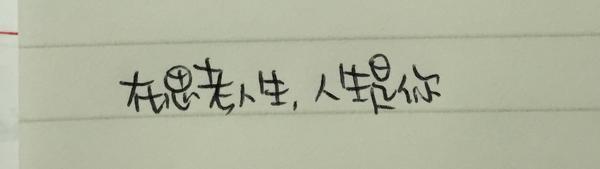 在思考人生,人生是你